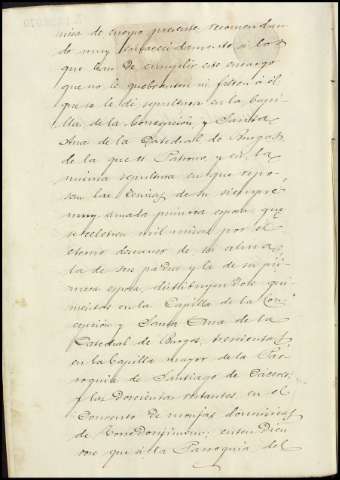 misa de cuerpo presente recomendan
do muy encarecidamente a los
que han de cumplir este encargo
que no le quebranten ni falten á él
que se le dé sepultura en la Capi
lla de la Concepción y Santa
Ana de la Catedral de Burgos
de la que es Patrono y en la
misma sepultura en que repo
san las cenizas de su siempre
muy amada primera esposa que
se celebren mil misas por el
eterno descanso de su alma
la de sus padres y la de su pri
mera esposa, distribuyendose qui
nientas en la Capilla de la Con
cepción y Santa Ana de la
Catedral de Burgos, trescientas
en la Capilla mayor de la Par
roquia de Santiago de Cáceres
y las Doscientas restantes, en el
Convento de monjas dominicas
de Torredonjimeno;
que á la Parroquia del